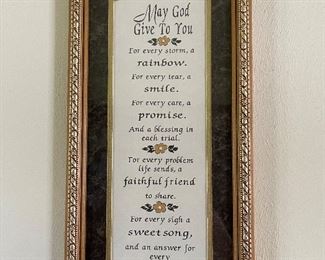 May God
Give To You
For every storm, a
rainbow.
For every tear, a
smile.
For every care, a
promise.
And a blessing in
each trial.
For every problem
life sends, a
faithful friend
to share.
For every sigh a
sweet song,
and an answer for
every